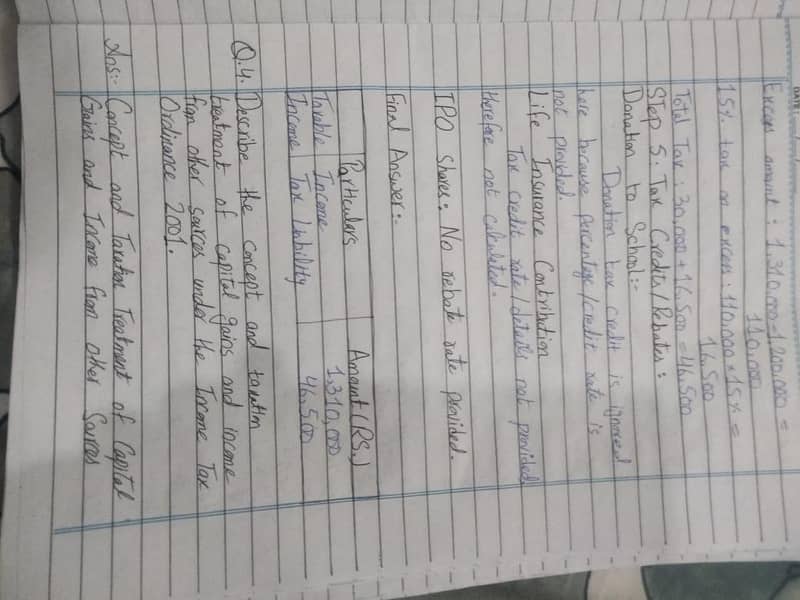 DATE:
Excess amount: 1,310,000-1,200,000 =
110,000
15% tax on excess: 110,000 x 15% =
16,500
Total Tax: 30,000 + 16,500 = 46,500
Step 5: Tax Credits/Rebates:
Donation to School:-
Donation tax credit is ignored
here because percentage/credit rate is
not provided.
Life Insurance Contribution
Tax credit rate/details not provided
therefore not calculated.
IPO Shares: No rebate rate provided.
Final Answer:-
Particulars Amount (RS.)
Taxable Income 1,310,000
Income Tax Liability 46,500
Q.4. Describe the concept and taxation
treatment of capital gains and income
from other sources under the Income Tax
Ordinance 2001.
Ans:- Concept and Taxation Treatment of Capital
Gains and Income from Other Sources